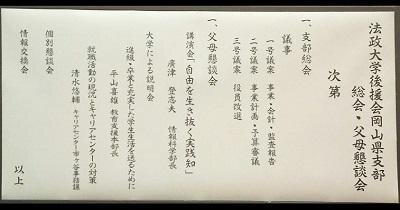 法政大学後援会岡山県支部
総会・父母懇談会
次第
一、支部総会
議事
一号議案 事業・会計・監査報告
二号議案 事業計画・予算審議
三号議案 役員改選
一、父母懇談会
講演会「自由を生き抜く実践知」
廣津 登志夫 情報科学部長
大学による説明会
進級・卒業と充実した学生生活を送るために
平山喜雄 教育支援本部長
就職活動の現況とキャリアセンターの対策
清水悠輔 キャリアセンター市ヶ谷事務課
個別懇談会
情報交換会
以上